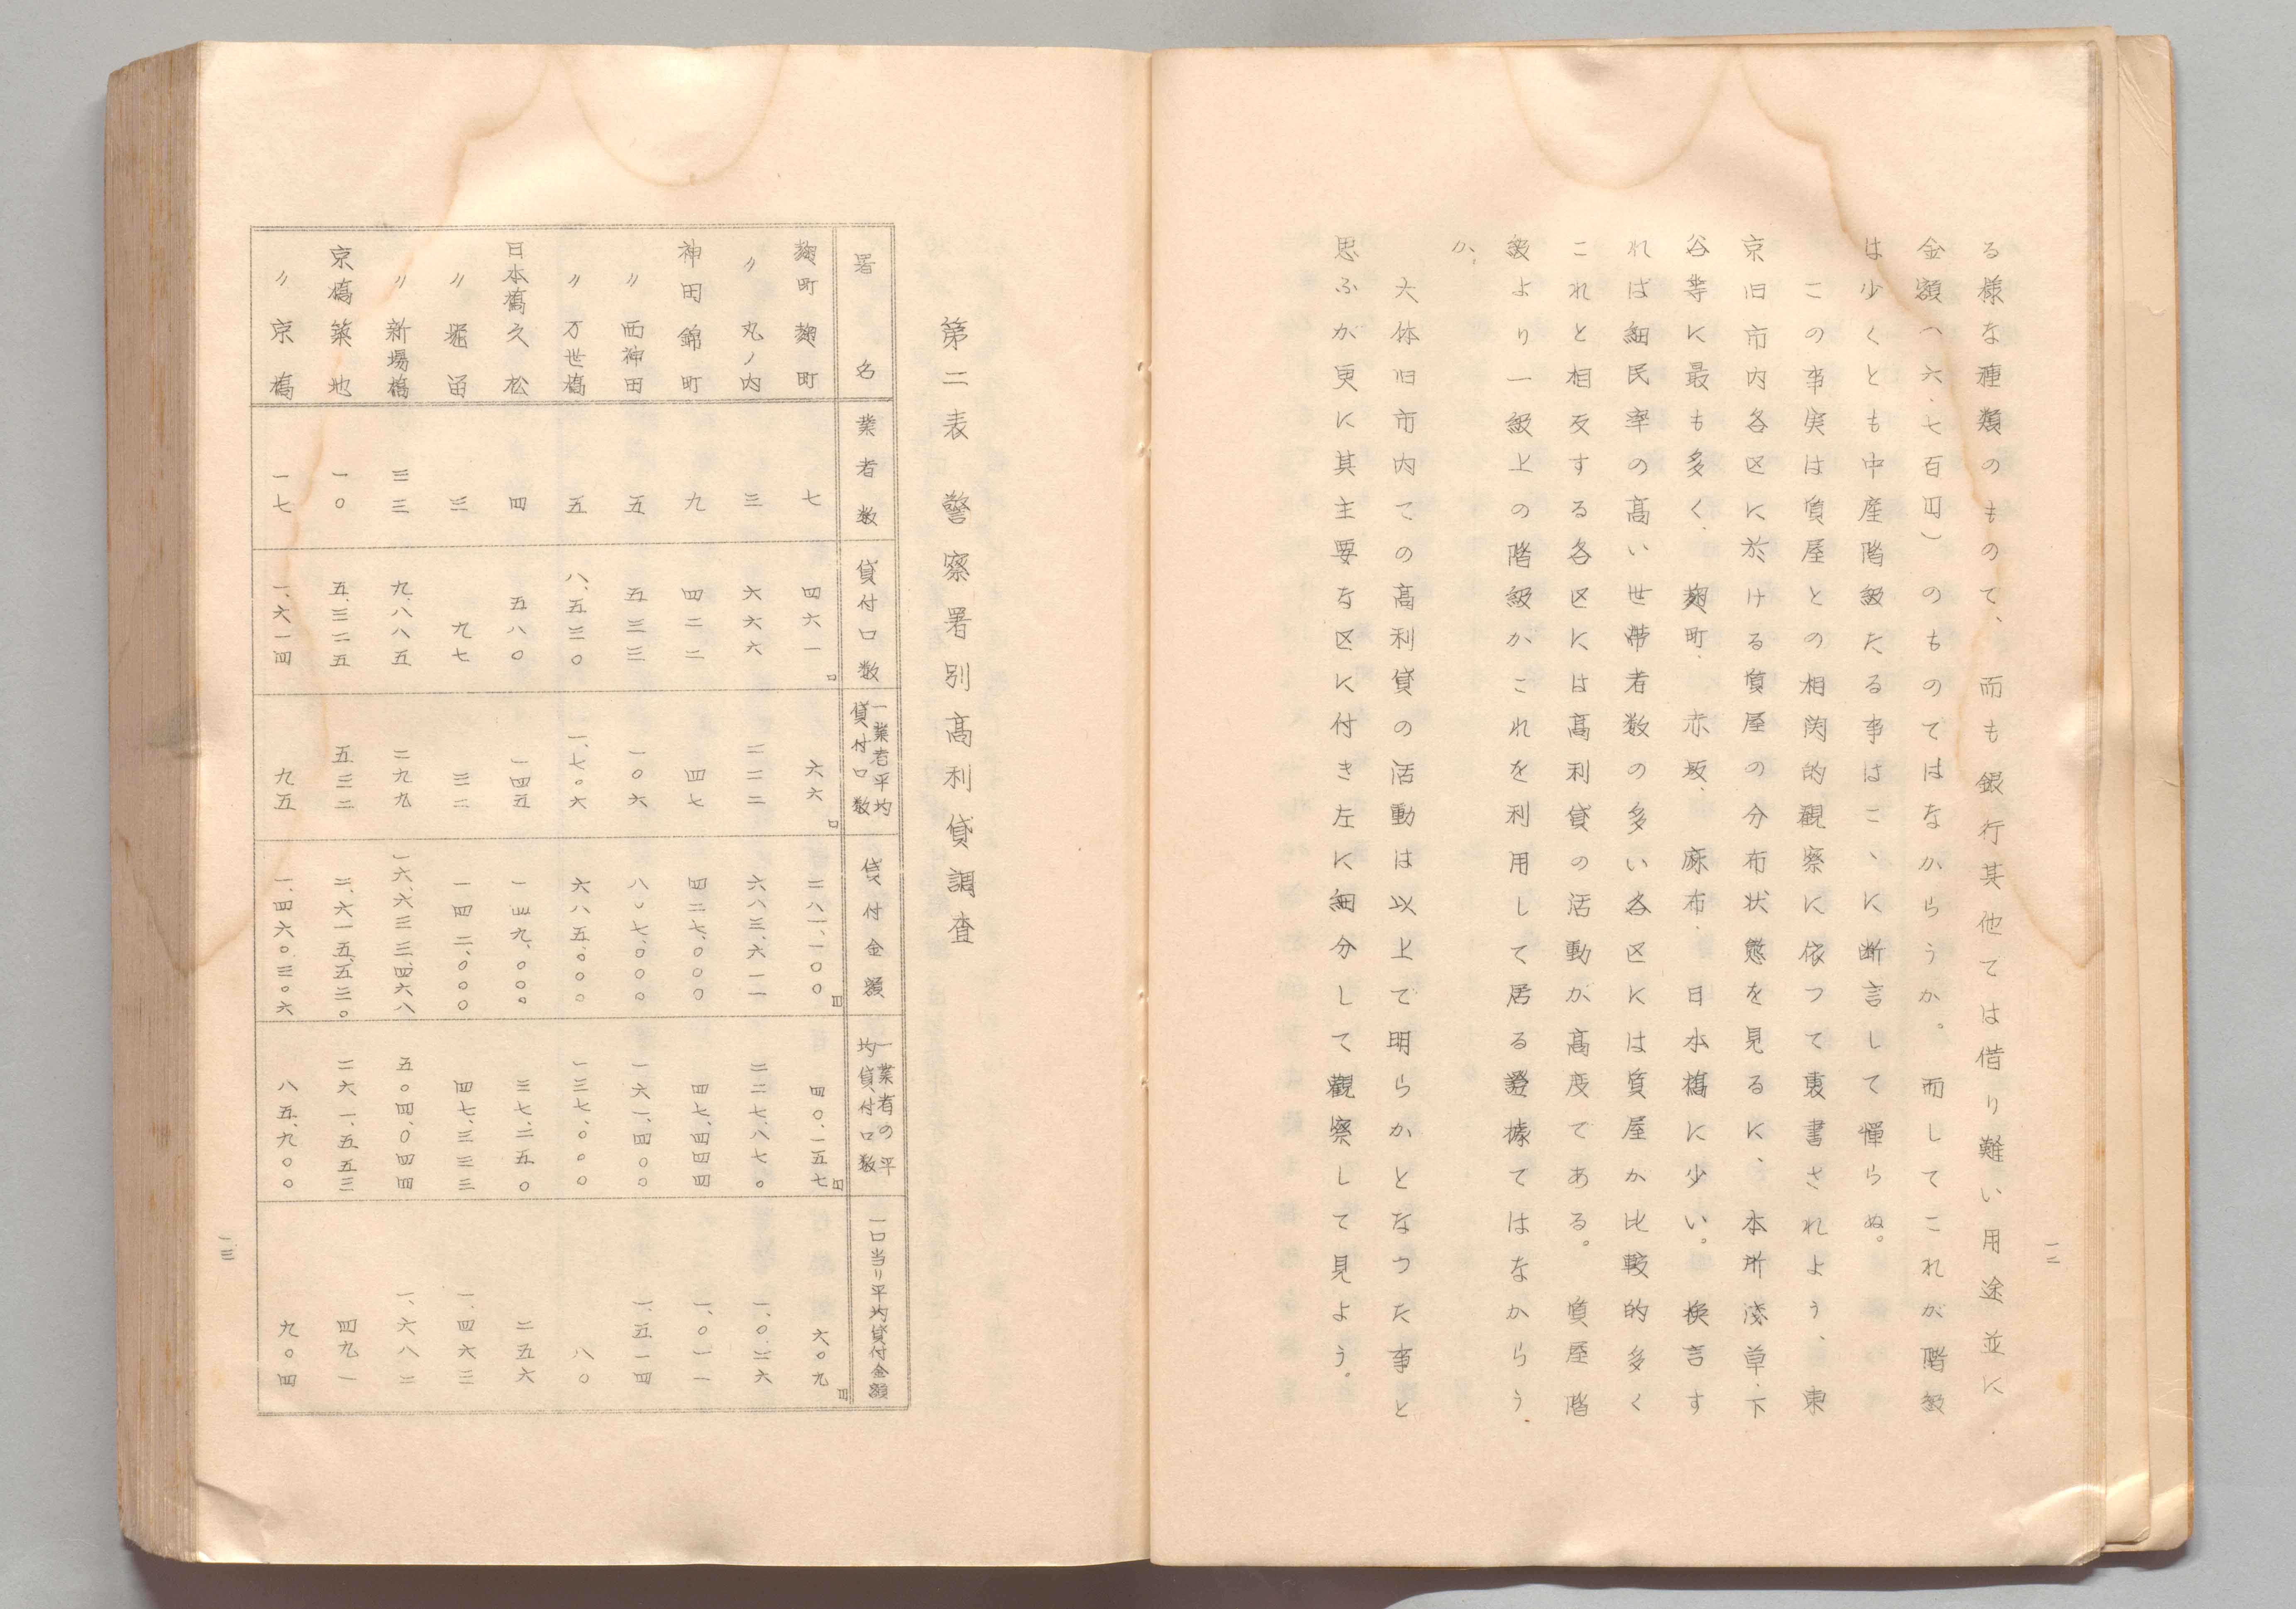 一二
る様な種類のもので、而も銀行其他では借り難い用途並に
金額(六、七百円)のものではなからうか。而してこれが階級
は少くとも中産階級たる事はこゝに断言して憚らぬ。
この事実は質屋との相関的観察に依つて裏書されよう、東
京旧市内各区に於ける質屋の分布状態を見るに、本所浅草、下
谷等に最も多く、麹町、赤坂、麻布、日本橋に少い。換言す
れば細民率の高い世帯者数の多い各区には質屋が比較的多く
これと相反する各区には高利貸の活動が高度である。質屋階
級より一級上の階級がこれを利用して居る證據ではなからう
か、
大体旧市内での高利貸の活動は以上で明らかとなつた事と
思ふが更に其主要な区に付き左に細分して観察して見よう。
第二表 警察署別高利貸調査
署名 業者数 貸付口数 一業者平均貸付口数 貸付金額 一業者の平均貸付口数 一口当リ平均貸付金額
麹町 麹町 七 四六一口 六六口 二八一、一〇〇円 四〇、一五七円 六〇九円
〃 丸ノ内 三 六六六 二二二 六八三、六一一 二二七、八七〇 一、〇二六
神田 錦町 九 四二二 四七 四二七、〇〇〇 四七、四四四 一、〇一一
〃 西神田 五 五三三 一〇六 八〇七、〇〇〇 一六一、四〇〇 一、五一四
〃 万世橋 五 八、五三〇 一、七〇六 六八五、〇〇〇 一三七、〇〇〇 八〇
日本橋 久松 四 五八〇 一四五 一四九、〇〇〇 三七、二五〇 二五六
〃 堀留 三 九七 三二 一四二、〇〇〇 四七、三三三 一、四六三
〃 新場橋 三三 九、八八五 二九九 一六、六三三、四六八 五〇四、〇四四 一、六八二
京橋 築地 一〇 五、三二五 五三二 二、六一五、五三〇 二六一、五五三 四九一
〃 京橋 一七 一、六一四 九五 一、四六〇、三〇六 八五、九〇〇 九〇四
一三